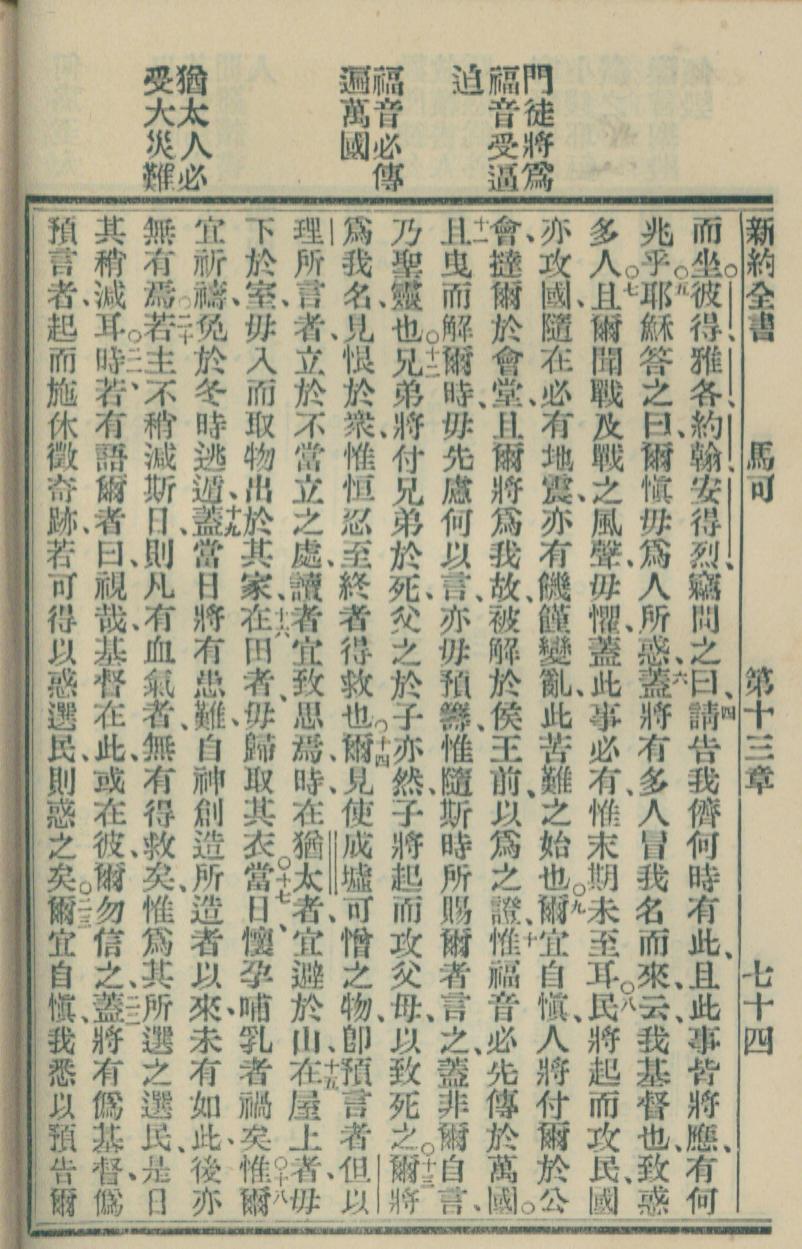 門徒將爲
福音受逼
迫
福音必傳
遍萬國
猶太人必
受大災難
新約全書 馬可 第十三章 七十四
而坐彼得雅各、約翰、安得烈、竊問之曰、四請告我儕何時有此、且此事皆將應、有何
兆乎、○五耶穌答之曰、爾愼毋爲人所惑、六蓋將有多人冒我名而來、云、我基督也、致惑
多人、○七且爾聞戰及戰之風聲、毋懼、蓋此事必有、惟末期未至耳、○八民將起而攻民、國
亦攻國、隨在必有地震、亦有饑饉變亂、此苦難之始也、○九爾宜自愼、人將付爾於公
會、撻爾於會堂、且爾將爲我故、被解於侯王前、以爲之證、十惟福音必先傳於萬國。
十一且曳而解爾時、毋先慮何以言、亦毋預籌、惟隨斯時所賜爾者言之、蓋非爾自言、
乃聖靈也、○十二兄弟將付兄弟於死、父之於子亦然、子將起而攻父母、以致死之、○十三爾將
爲我名、見恨於衆、惟恒忍至終者得救也、○十四爾見使成墟可憎之物、卽預言者但以
理所言者、立於不當立之處、讀者宜致思焉、時、在猶太者、宜避於山、十五在屋上者、毋
下於室、毋入而取物出於其家、十六在田者、毋歸取其衣、○十七當日、懷孕哺乳者禍矣、○十八惟爾
宜祈禱、免於冬時逃遁、十九蓋當日將有患難、自神創造所造者以來、未有如此、後亦
無有焉、○二十若主不稍減斯日、則凡有血氣者、無有得救矣、惟爲其所選之選民、是日
其稍減耳、○二一時、若有語爾者曰、視哉、基督在此、或在彼、爾勿信之、二二蓋將有僞基督、僞
預言者、起而施休徵奇跡、若可得以惑選民、則惑之矣、○二三爾宜自愼、我悉以預告爾